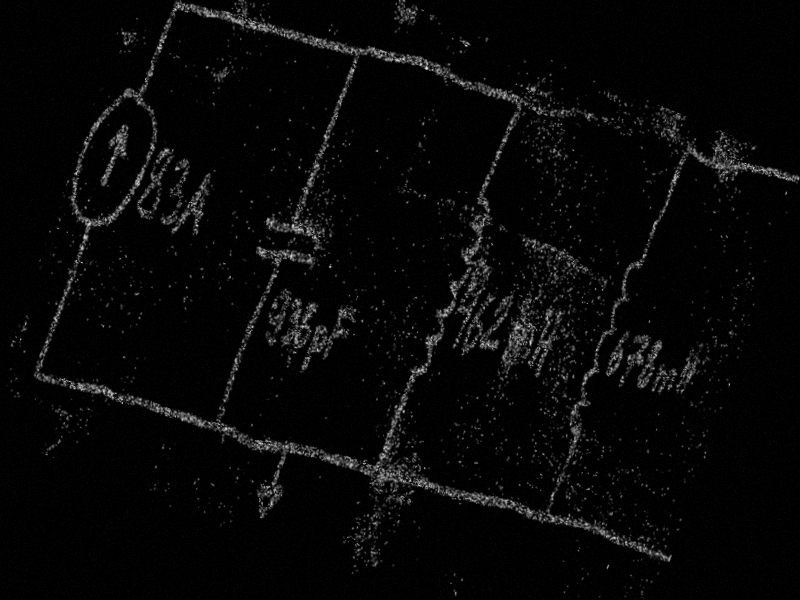 83A
936pF
962mH
678mH